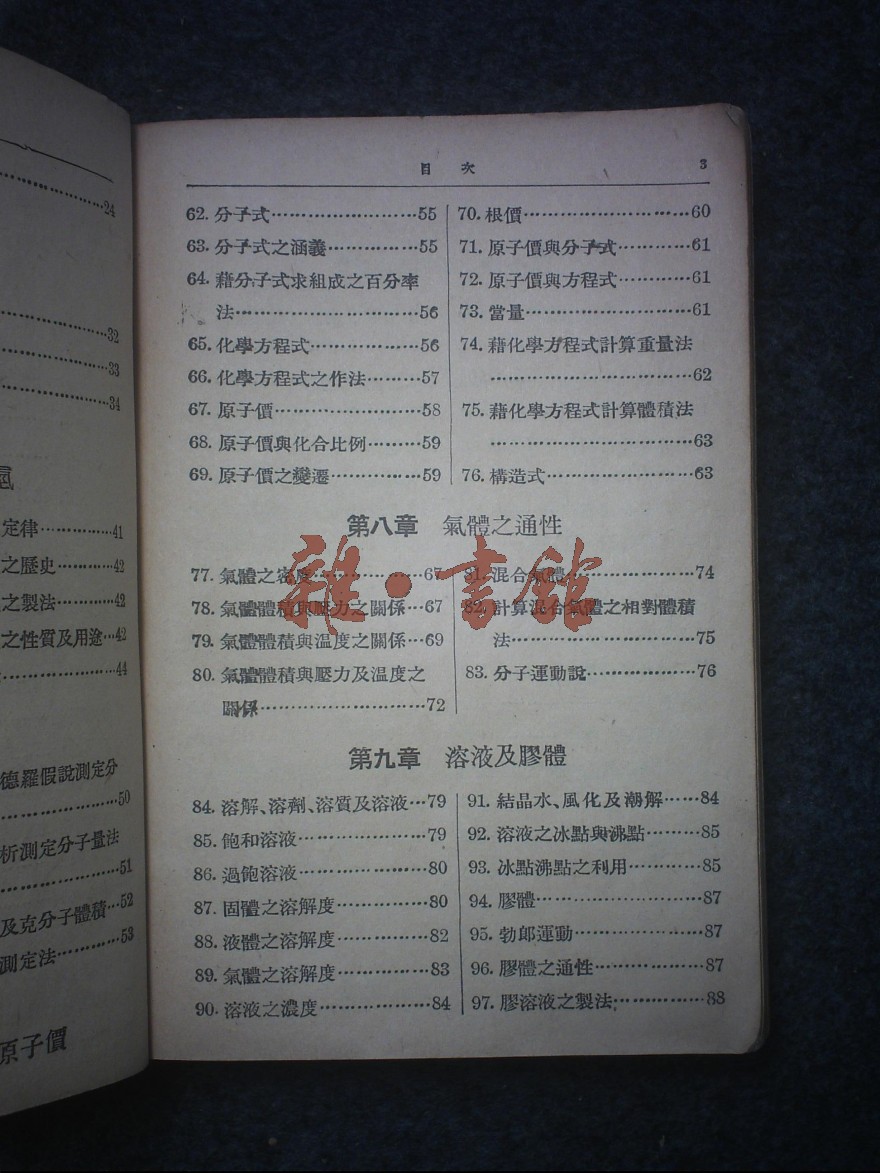 24
32
33
34
氣
定律…………41
之歷史………42
之製法………42
之性質及用途…42
44
德羅假說測定分
50
析測定分子量法
51
及克分子體積…52
測定法…………53
原子價
目　次　3
62. 分子式……………………55
63. 分子式之涵義……………55
64. 藉分子式求組成之百分率
法…………………………56
65. 化學方程式………………56
66. 化學方程式之作法………57
67. 原子價……………………58
68. 原子價與化合比例………59
69. 原子價之變遷……………59
70. 根價………………………60
71. 原子價與分子式…………61
72. 原子價與方程式…………61
73. 當量………………………61
74. 藉化學方程式計算重量法
……………………………62
75. 藉化學方程式計算體積法
……………………………63
76. 構造式……………………63
第八章　氣體之通性
77. 氣體之密度………………67
78. 氣體體積與壓力之關係…67
79. 氣體體積與温度之關係…69
80. 氣體體積與壓力及温度之
關係………………………72
81. 混合氣體…………………74
82. 計算混合氣體之相對體積
法…………………………75
83. 分子運動說………………76
雜·書館
第九章　溶液及膠體
84. 溶解、溶劑、溶質及溶液…79
85. 飽和溶液…………………79
86. 過飽溶液…………………80
87. 固體之溶解度……………80
88. 液體之溶解度……………82
89. 氣體之溶解度……………83
90. 溶液之濃度………………84
91. 結晶水、風化及潮解……84
92. 溶液之冰點與沸點………85
93. 冰點沸點之利用…………85
94. 膠體………………………87
95. 勃郎運動…………………87
96. 膠體之通性………………87
97. 膠溶液之製法……………88